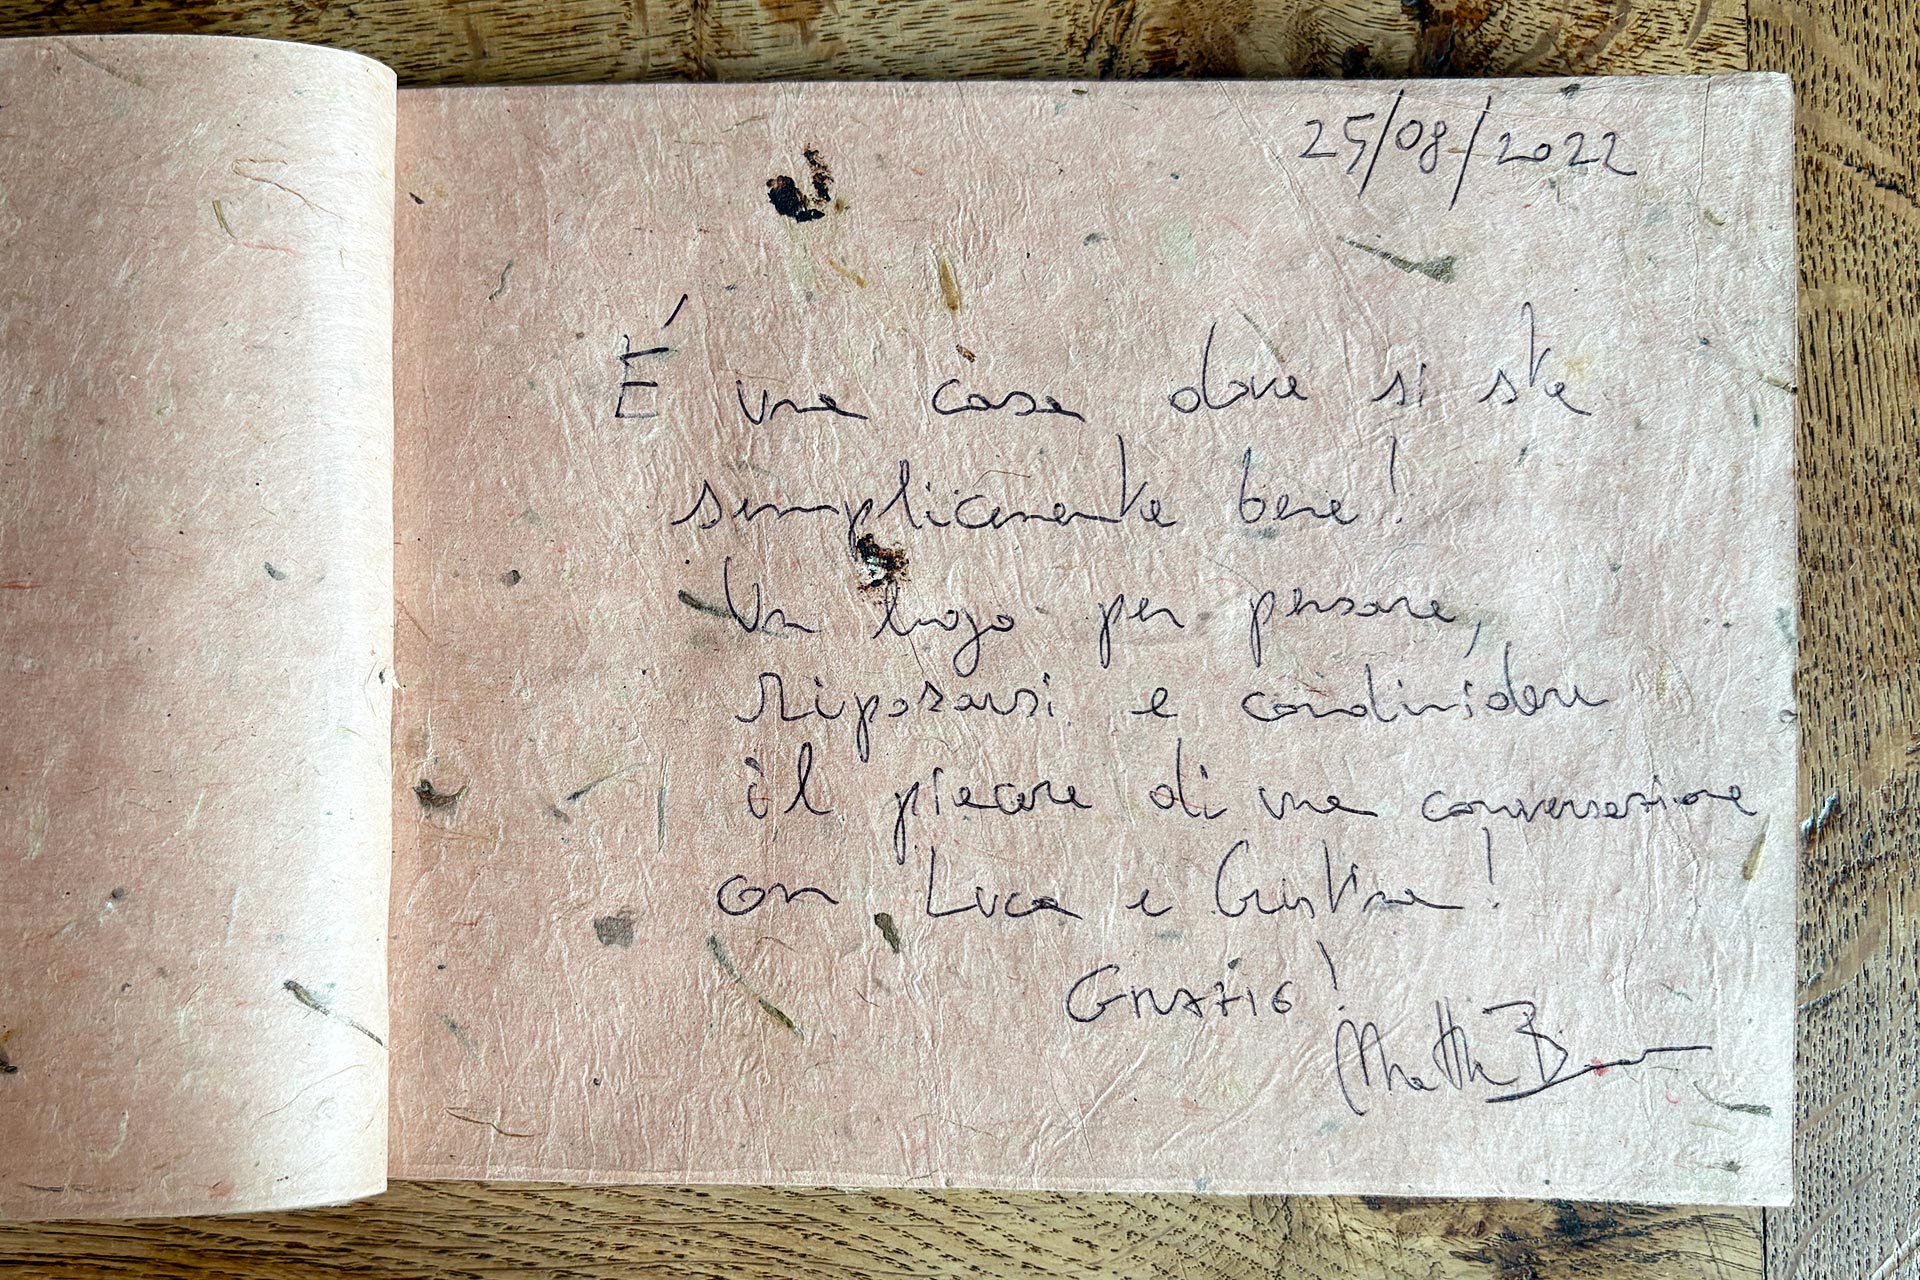 25/08/2022
É una casa dove si sta
semplicemente bene!
Un luogo per pensare,
riposarsi e condividere
il piacere di una conversazione
con Luca e Cristina!
GRAZIE!